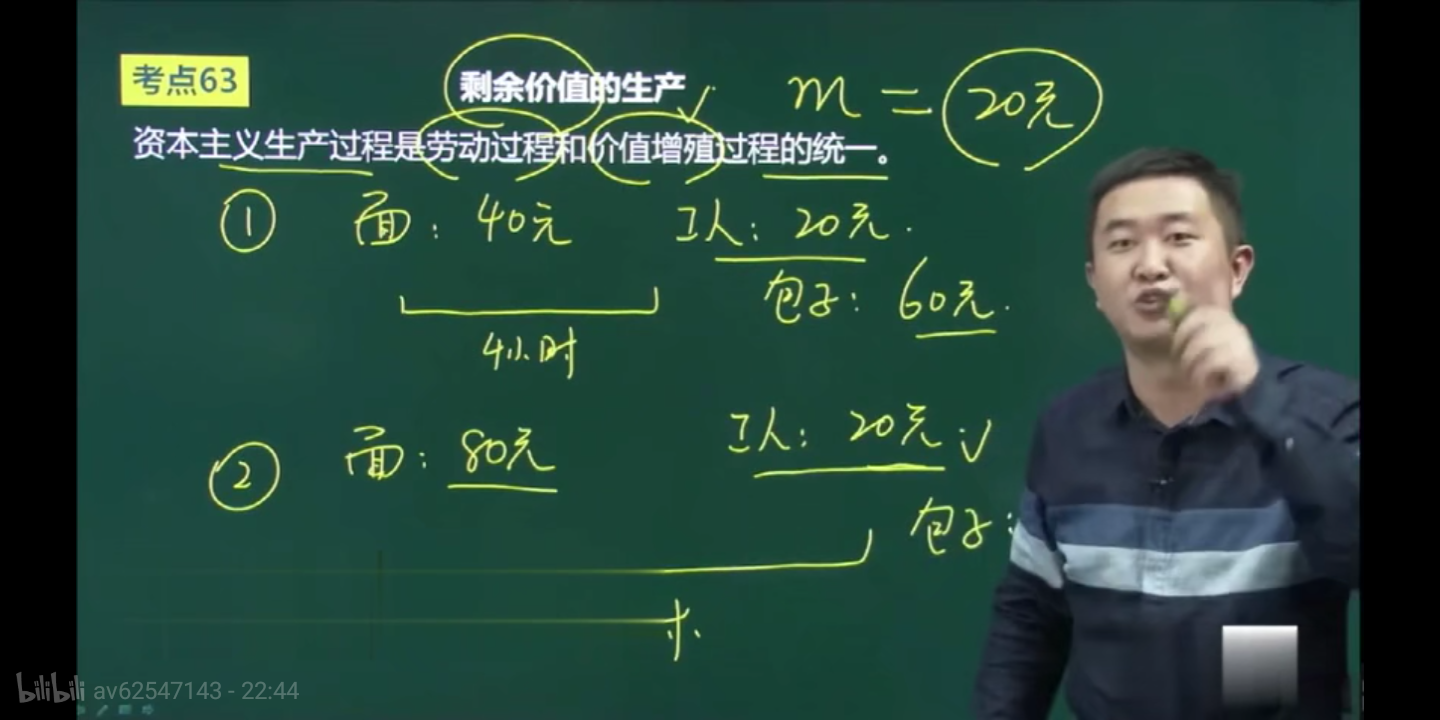 考点63
剩余价值的生产 m = 20元
资本主义生产过程是劳动过程和价值增殖过程的统一。
① 面: 40元 工人: 20元.
包子: 60元.
4小时
② 面: 80元 工人: 20元.
包子:
小
bilibili av62547143 - 22:44